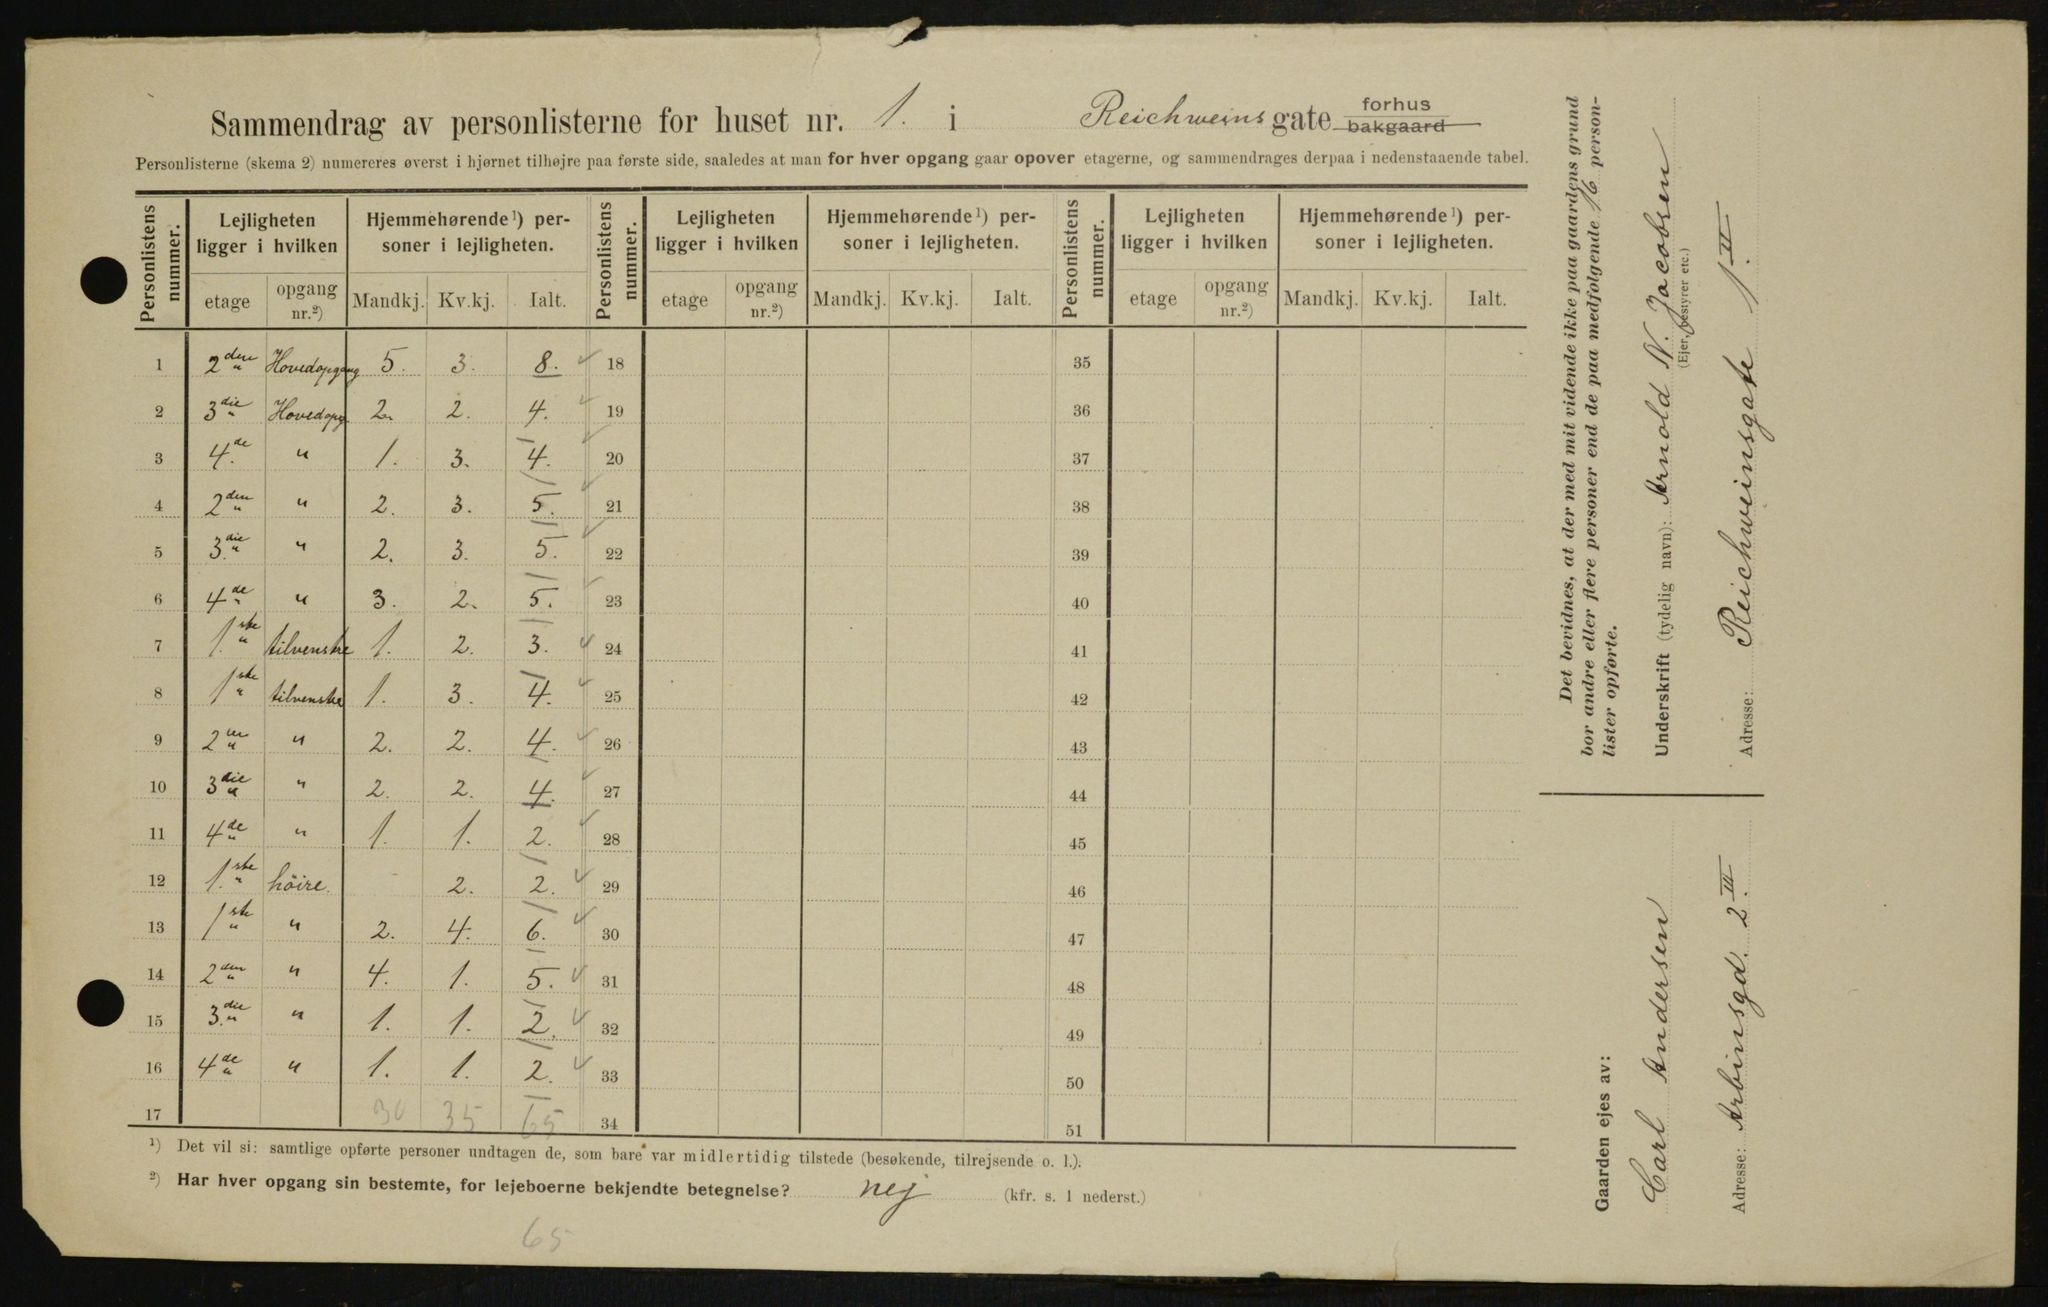 Sammendrag av personlisterne for huset nr. 1. i Reichweins gate forhus bakgaard
Personlisterne (skema 2) numereres øverst i hjørnet tilhøjre paa første side, saaledes at man for hver opgang gaar opover etagerne, og sammendrages derpaa i nedenstaaende tabel.
Personlistens nummer. Lejligheten ligger i hvilken Hjemmehørende ¹) personer i lejligheten. Personlistens nummer. Lejligheten ligger i hvilken Hjemmehørende ¹) personer i lejligheten. Personlistens nummer. Lejligheten ligger i hvilken Hjemmehørende ¹) personer i lejligheten.
etage opgang nr.²) Mandkj. Kv.kj. Ialt. etage opgang nr.²) Mandkj. Kv.kj. Ialt. etage opgang nr.²) Mandkj. Kv.kj. Ialt.
1 2den " Hovedopgang 5. 3. 8. 18 35
2 3die " Hovedopg. 2. 2. 4. 19 36
3 4.de " 1. 3. 4. 20 37
4 2den " " 2. 3. 5. 21 38
5 3.die " " 2. 3. 5. 22 39
6 4de " " 3. 2. 5. 23 40
7 1.ste " tilvenstre 1. 2. 3. 24 41
8 1ste " tilvenstre 1. 3. 4. 25 42
9 2den " " 2. 2. 4. 26 43
10 3die " " 2. 2. 4. 27 44
11 4de " " 1. 1. 2. 28 45
12 1.ste " höire. 2. 2. 29 46
13 1ste " " 2. 4. 6. 30 47
14 2den " " 4. 1. 5. 31 48
15 3.die " " 1. 1. 2. 32 49
16 4de " " 1. 1. 2. 33 50
17 30 35 65 34 51
¹) Det vil si: samtlige opførte personer undtagen de, som bare var midlertidig tilstede (besøkende, tilrejsende o. l.).
²) Har hver opgang sin bestemte, for lejeboerne bekjendte betegnelse? nej (kfr. s. 1 nederst.)
65
Det bevidnes, at der med mit vidende ikke paa gaardens grund
bor andre eller flere personer end de paa medfølgende 16 person-
lister opførte.
Underskrift (tydelig navn): Arnold N. Jacobsen
(Ejer, bestyrer etc.)
Adresse: Reichweinsgate 1. II
Gaarden ejes av:
Carl Andersen
Adresse: Arbinsgd. 2. III